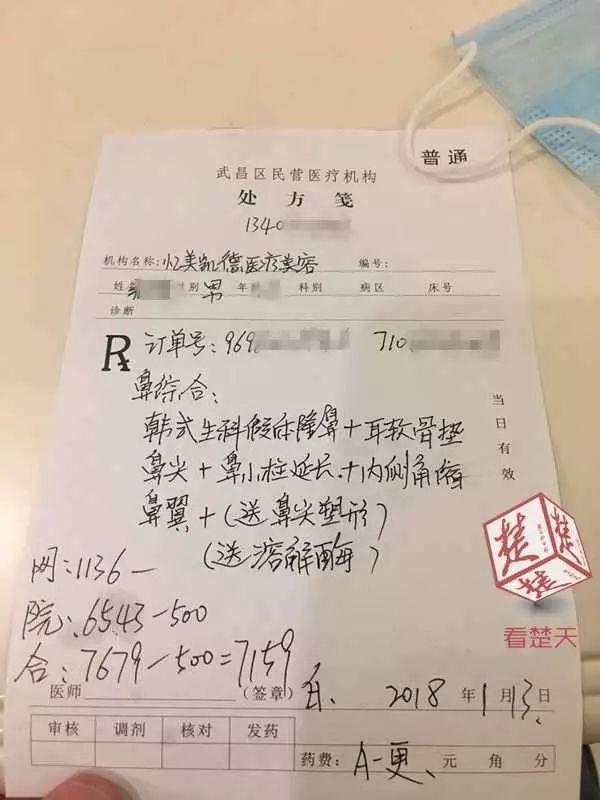 普通
武昌区民营医疗机构
处方笺
1340
机构名称:忆美凯德医疗美容 编号:
姓 别 男 年 科别 病区 床号
诊断
R 订单号:969 710
鼻综合:
韩式生科假体隆鼻+耳软骨垫
鼻尖+鼻小柱延长+内侧角缩
鼻翼+(送鼻尖塑形)
(送溶解酶)
当日有效
楚
楚
楚
看楚天
网:1136—
院:6543-500
合:7679-500=7159
医师 (签章) 2018年1月13日
审核 调剂 核对 发药
药费: 元 角 分